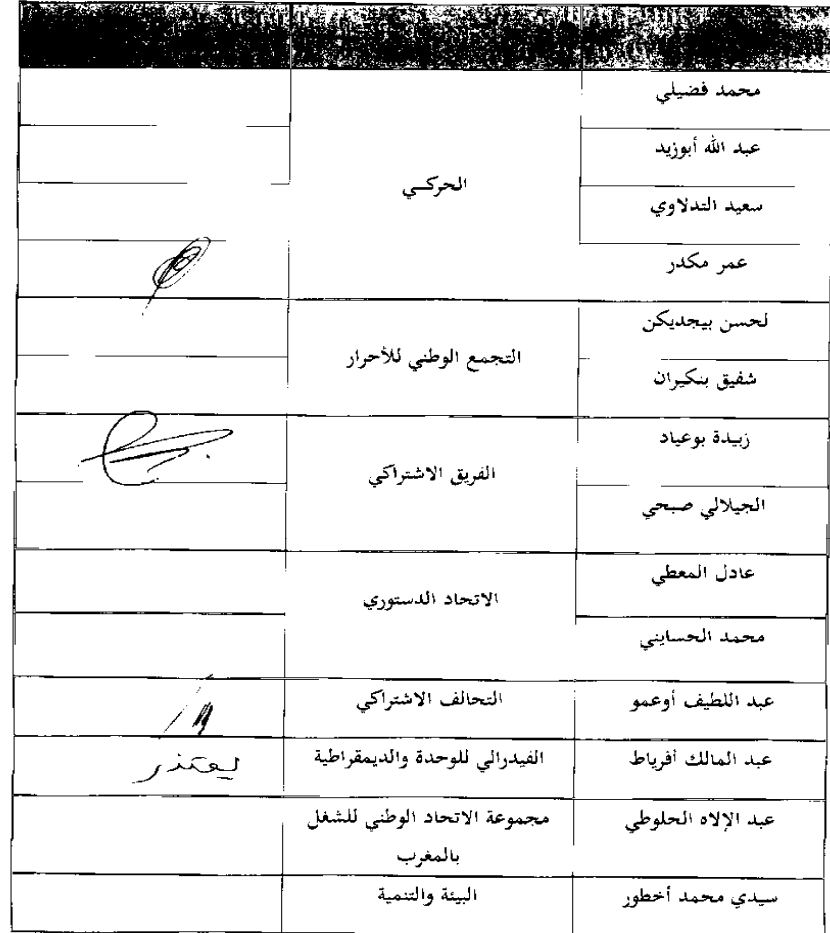 محمد فضيلي
عبد الله أبوزيد
الحركي
سعيد التدلاوي
عمر مكدر
لحسن بيجديكن
التجمع الوطني للأحرار
شفيق بنكيران
زبيدة بوعياد
الفريق الاشتراكي
الجيلالي صبحي
عادل المعطي
الاتحاد الدستوري
محمد الحسايني
عبد اللطيف أوعمو التحالف الاشتراكي
عبد المالك أفرياط الفيدرالي للوحدة والديمقراطية يعتذر
عبد الإلاه الحلوطي مجموعة الاتحاد الوطني للشغل
بالمغرب
سيدي محمد أخطور البيئة والتنمية